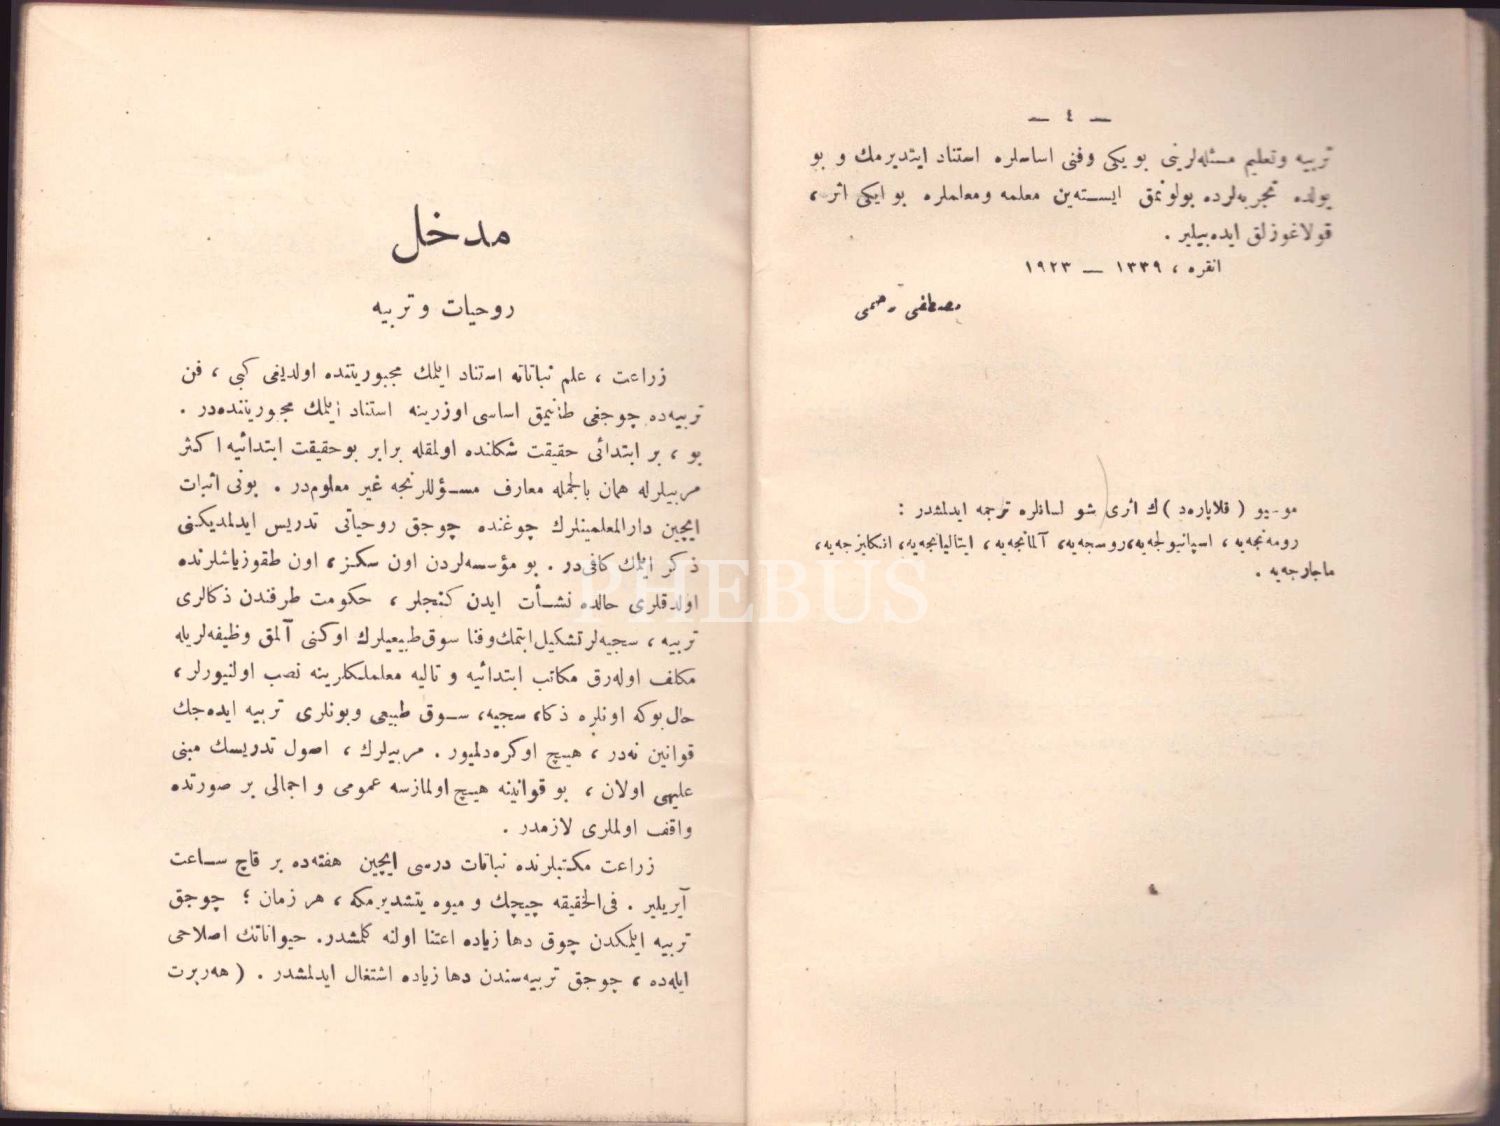 — ٤ —
تربيه وتعليم مسئله‌لرينى بو يكى وفنى اساسلره استناد ايتديرمك و بو
يولده تجربه‌لرده بولونمق ايسته‌ين معلمه ومعلملره بو ايكى اثر ،
قولاغوزلق ايده‌بيلير .
انقره ، ١٣٣٩ — ١٩٢٣
مصطفى رحمى
موسيو ( قلاپاره‌د ) ك اثرى شو لسانلره ترجمه ايدلمشدر :
رومه‌نجه‌يه ، اسپانيولجه‌يه، روسجه‌يه، آلمانجه‌يه ، ايتاليانجه‌يه، انكليزجه‌يه،
ماجارجه‌يه .
مدخل
روحيات و تربيه
زراعت ، علم نباتاته استناد ايلمك مجبوريتنده اولديغى كبى ، فن
تربيه‌ده چوجغى طانيمق اساسى اوزرينه استناد ايلمك مجبوريتنده‌در .
بو ، بر ابتدائى حقيقت شكلنده اولمقله برابر بوحقيقت ابتدائيه اكثر
مربيلرله همان بالجمله معارف مسؤللرنجه غير معلوم‌در . بونى اثبات
ايچين دارالمعلمينلرك چوغنده چوجق روحياتى تدريس ايدلمديكنى
ذكر ايلمك كافى‌در . بو مؤسسه‌لردن اون سكز ، اون طقوز ياشلرنده
اولدقلرى حالده نشأت ايدن كنجلر ، حكومت طرفندن ذكالرى
تربيه ، سجيه‌لر تشكيل ايتمك وفنا سوق طبيعيلرك اوكنى آلمق وظيفه‌لريله
مكلف اوله‌رق مكاتب ابتدائيه و تاليه معلملكلرينه نصب اولنيورلر ،
حال بوكه اونلره ذكا، سجيه، سوق طبيعى وبونلرى تربيه ايده‌جك
قوانين نه‌در ، هيچ اوكره‌دلميور . مربيلرك ، اصول تدريسك مبنى
عليهى اولان ، بو قوانينه هيچ اولمازسه عمومى و اجمالى بر صورتده
واقف اولملرى لازمدر .
زراعت مكتبلرنده نباتات درسى ايچين هفته‌ده بر قاچ ساعت
آيريلير . فى‌الحقيقه چيچك و ميوه يتشديرمكه ، هر زمان ؛ چوجق
تربيه ايلمكدن چوق دها زياده اعتنا اولنه كلمشدر. حيواناتك اصلاحى
ايله‌ده ، چوجق تربيه‌سندن دها زياده اشتغال ايدلمشدر . ( هه‌ربرت
PHEBUS